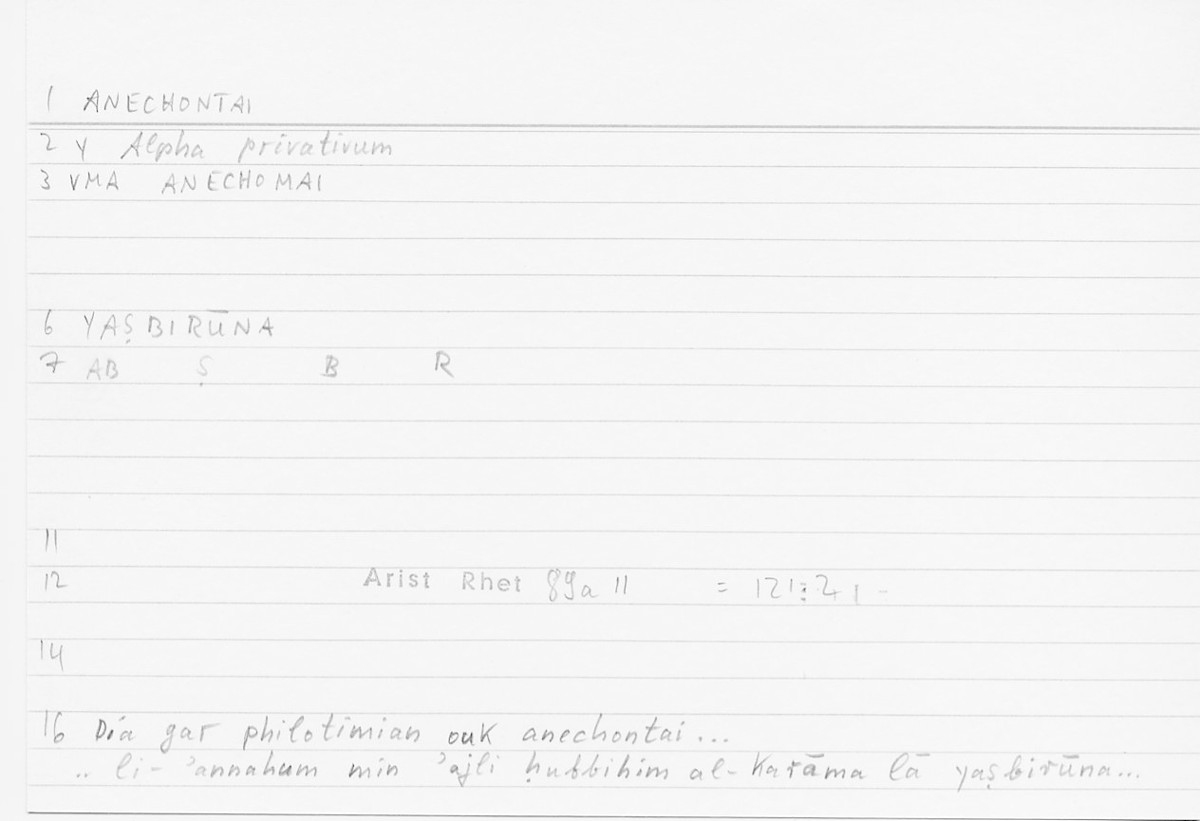 1 ANECHONTAI
2 y Alpha privativum
3 VMA ANECHOMAI
6 YAṢBIRŪNA
7 AB Ṣ B R
11
12 Arist Rhet 89a 11 = 121:
14
16 Día gar philotimian ouk anechontai...
.. li- ʾannahum min ʾajli ḥubbihim al-karāma lā yaṣbirūna...